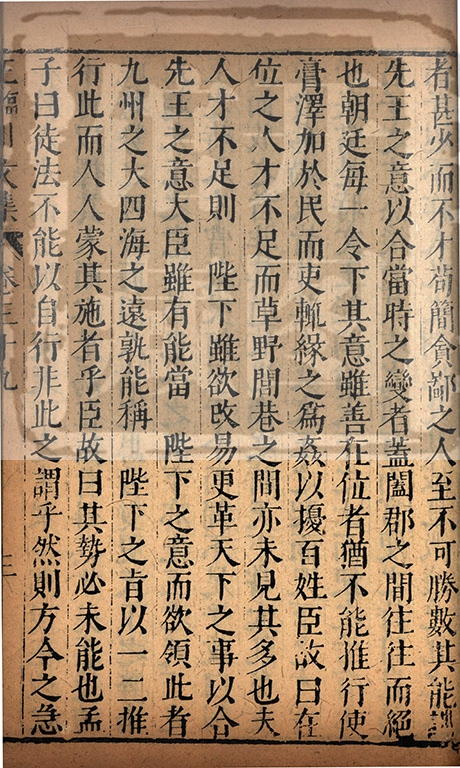 者甚少而不才苟簡貪鄙之人至不可勝數其能講
先王之意以合當時之變者蓋闔郡之間往往而絕
也朝廷每一令下其意雖善在位者猶不能推行使
膏澤加於民而吏輒緣之為姦以擾百姓臣故曰在
位之人才不足而草野閭巷之間亦未見其多也夫
人才不足則 陛下雖欲改易更革天下之事以合
先王之意大臣雖有能當 陛下之意而欲領此者
九州之大四海之遠孰能稱 陛下之旨以一二推
行此而人人蒙其施者乎臣故曰其勢必未能也孟
子曰徒法不能以自行非此之謂乎然則方今之急
王臨川文集 卷三十九 三